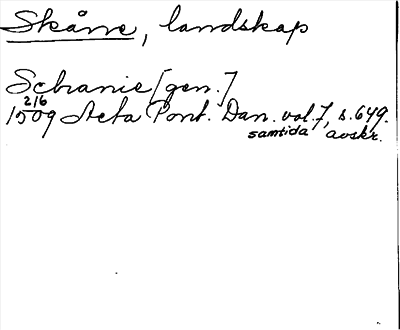 Skåne, landskap
Schanie [gen.]
2/6
1509 Acta Pont. Dan. vol. 7, s. 649.
samtida avskr.